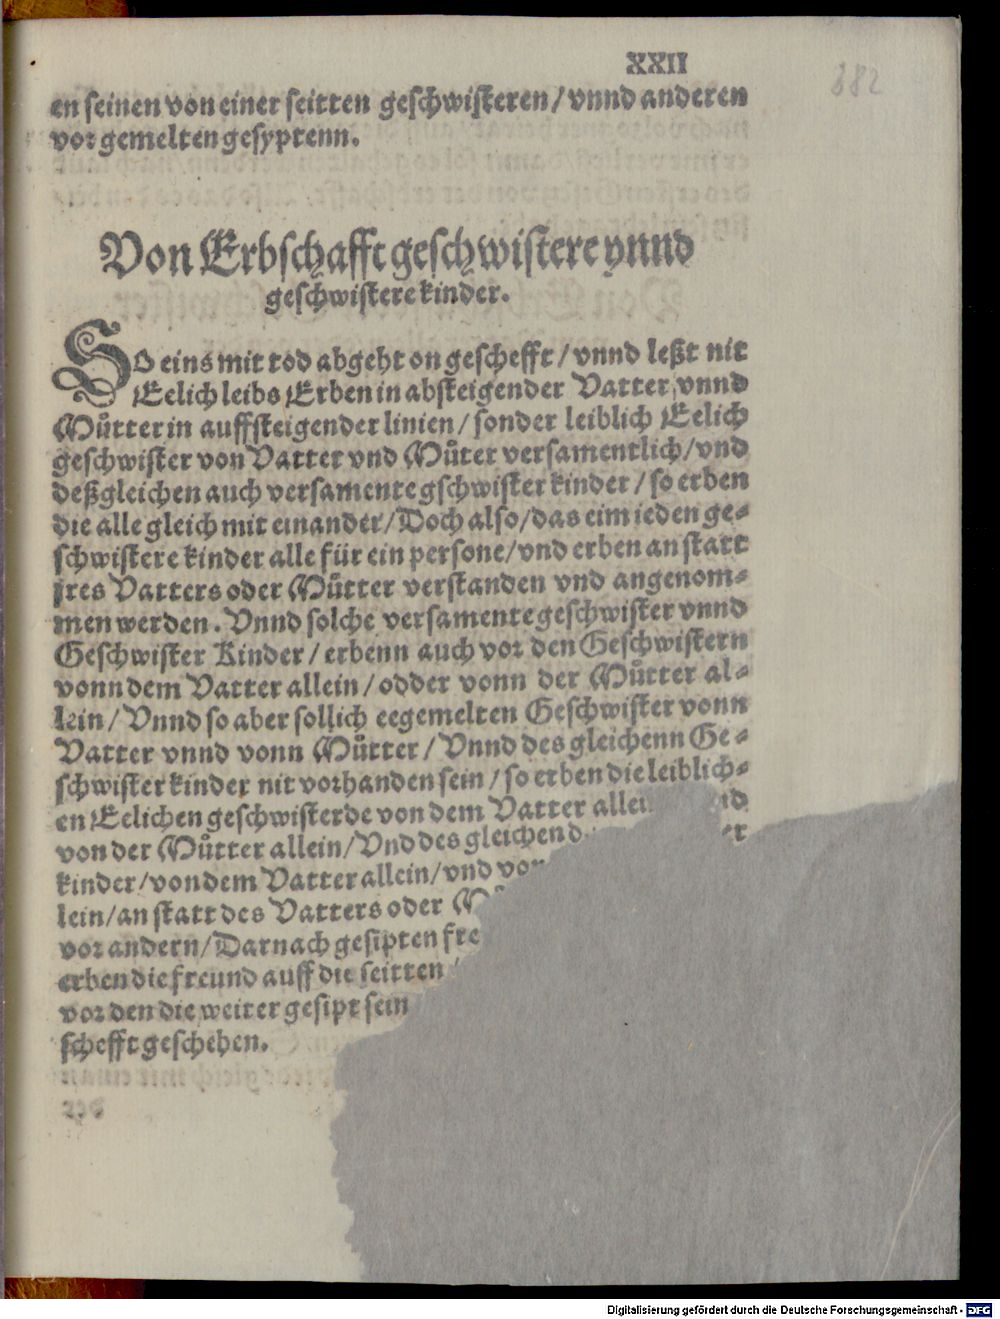 XXII
382
en seinen von einer seitten geschwisteren/vnnd anderen
vorgemelten gesyptenn.
Von Erbschafft geschwistere ynnd
geschwistere kinder.
SO eins mit tod abgeht on geschefft/vnnd leßt nit
Eelich leibs Erben in absteigender Vatter, vnnd
Můtter in auffsteigender linien/sonder leiblich Eelich
geschwister von Vatter vnd Můter versamentlich/vnd
deßgleichen auch versamente gschwister kinder/so erben
die alle gleich mit einander/Doch also/das eim ieden ge-
schwistere kinder alle für ein persone/vnd erben an statt
jres Vatters oder Můtter verstanden vnd angenom-
men werden. Vnnd solche versamente geschwister vnnd
Geschwister Kinder/erbenn auch vor den Geschwistern
vonn dem Vatter allein/odder vonn der Můtter al-
lein/Vnnd so aber sollich eegemelten Geschwister vonn
Vatter vnnd vonn Můtter/Vnnd des gleichenn Ge-
schwister kinder nit vorhanden sein/so erben die leiblich-
en Eelichen geschwisterde von dem Vatter
von der Můtter allein/Vnd des gleichen
kinder/von dem Vatter allein/vnd
lein/an statt des Vatters oder
vor andern/Darnach gesipten
erben die freund auff die seitten
vor den die weiter gesipt sein
schefft geschehen.